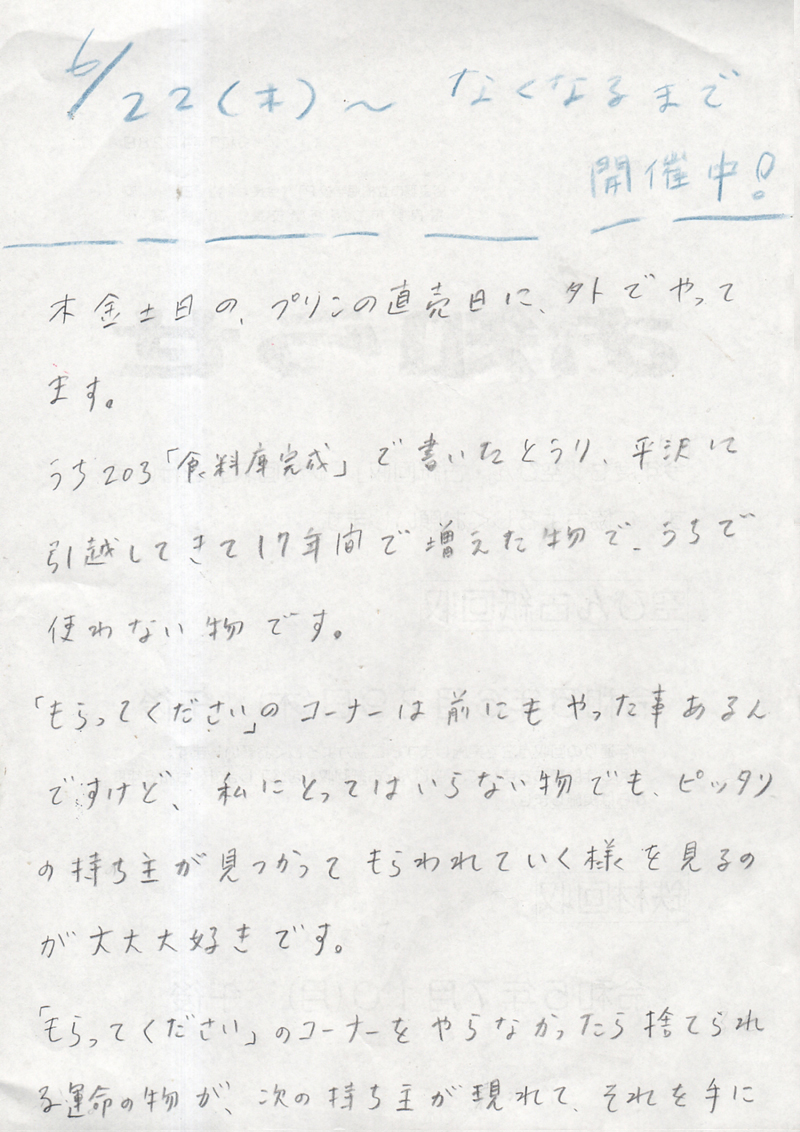 6/22(木)～ なくなるまで
開催中!
木金土日の、プリンの直売日に、外でやって
ます。
うち203「食料庫完成」で書いたとうり、平沢に
引越してきて17年間で増えた物で、うちで
使わない物です。
「もらってください」のコーナーは前にもやった事あるん
ですけど、私にとってはいらない物でも、ピッタリ
の持ち主が見つかってもらわれていく様を見るの
が大大大好きです。
「もらってください」のコーナーをやらなかったら捨てられ
る運命の物が、次の持ち主が現れて、それを手に